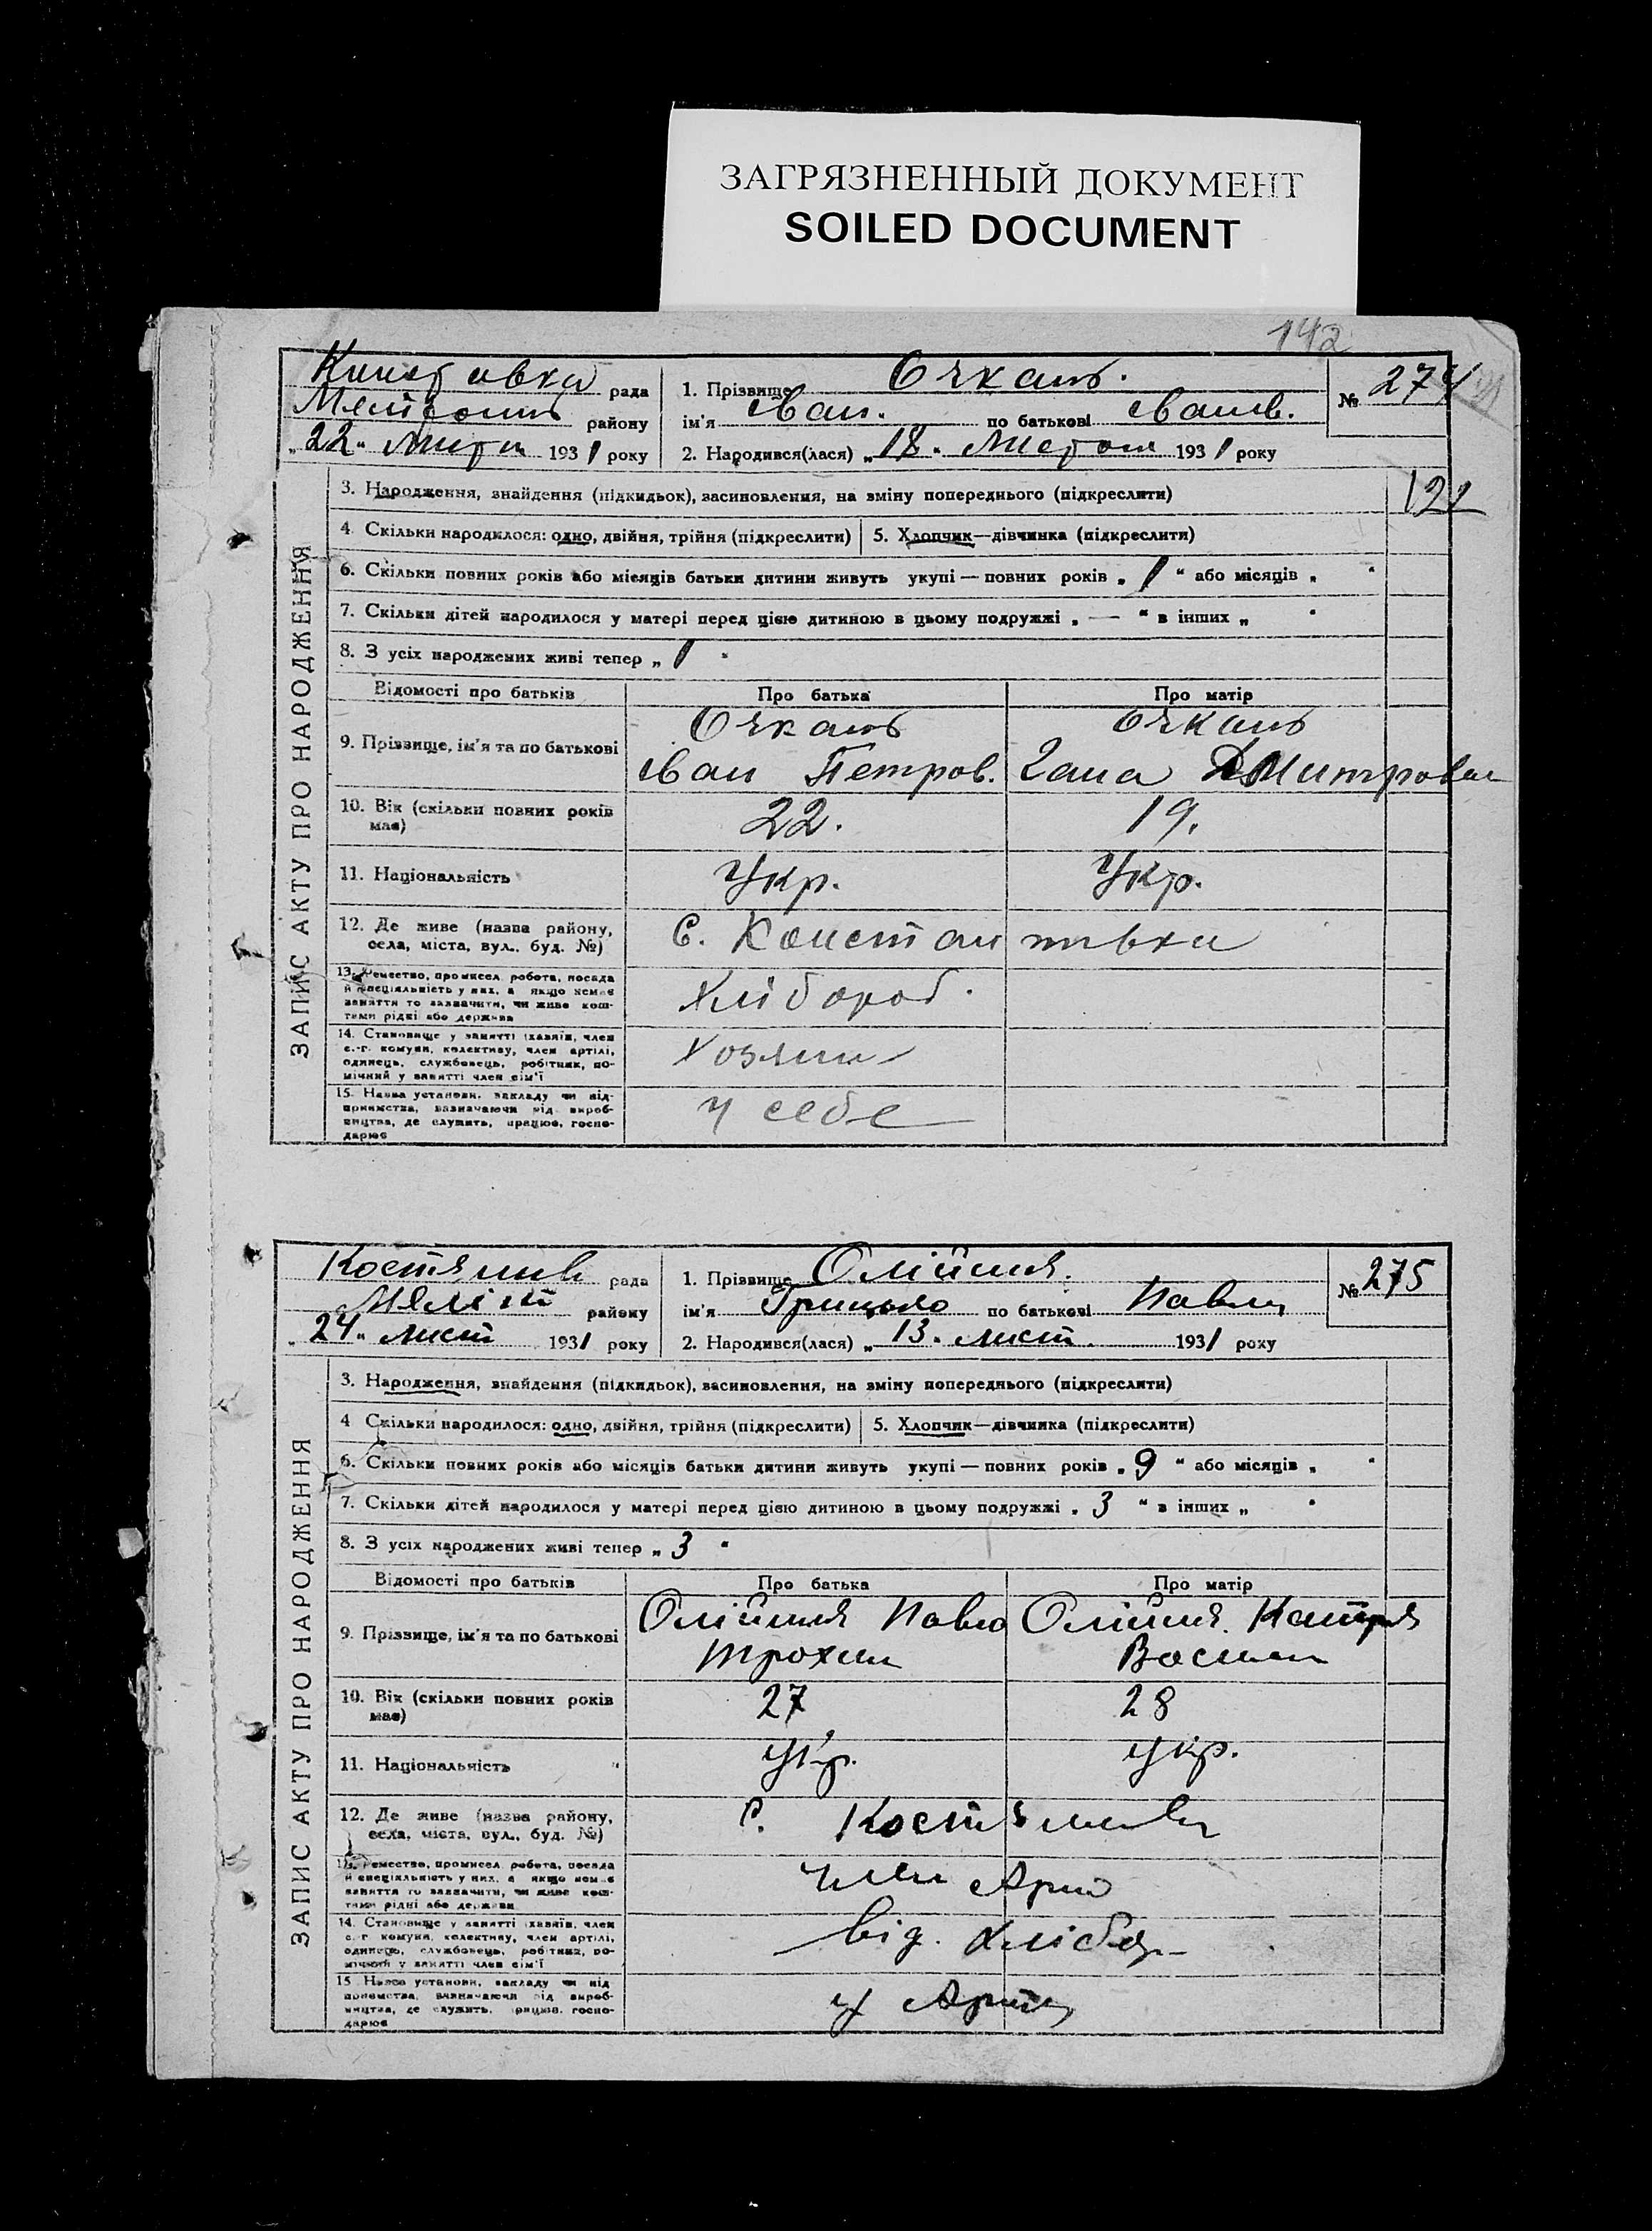 ЗАГРЯЗНЕННЫЙ ДОКУМЕНТ
SOILED DOCUMENT
142
рада
району
"22" 1931 року
1. Прізвище Очкань.
ім'я Іван. по батькові Іванів.
2. Народився(лася) "18" 1931 року
№ 274
ЗАПИС АКТУ ПРО НАРОДЖЕННЯ
3. Народження, знайдення (підкидьок), засиновлення, на зміну попереднього (підкреслити)
122
4 Скільки народилося: одно, двійня, трійня (підкреслити) 5. Хлопчик—дівчинка (підкреслити)
6. Скільки повних років або місяців батьки дитини живуть укупі — повних років „ 1 “ або місяців „ “
7. Скільки дітей народилося у матері перед цією дитиною в цьому подружжі „ — “ в інших „ “
8. З усіх народжених живі тепер „ 1 “
Відомості про батьків Про батька Про матір
9. Прізвище, ім'я та по батькові
Очкань Очкань
Іван Петров. Гана Дмитровна
10. Вік (скільки повних років має) 22. 19.
11. Національність Укр. Укр.
12. Де живе (назва району, села, міста, вул., буд. №) С. Константивка
13. Ремество, промисел, робота, посада й спеціяльність у них, а якщо немає заняття то зазначити, чи живе коштами рідні або держави Хлібороб.
14. Становище у занятті (хазяїн, член с.-г. комуни, колективу, член артілі, одинець, службовець, робітник, помічний у занятті член сім'ї Хозяин
15. Назва установи, закладу чи підприємства, зазначаючи від виробництва, де служить, працює, господарює у себе
рада
району
"24" лист 1931 року
1. Прізвище
ім'я Грицько по батькові Павло
2. Народився(лася) "13" лист. 1931 року
№ 275
ЗАПИС АКТУ ПРО НАРОДЖЕННЯ
3. Народження, знайдення (підкидьок), засиновлення, на зміну попереднього (підкреслити)
4 Скільки народилося: одно, двійня, трійня (підкреслити) 5. Хлопчик—дівчинка (підкреслити)
6. Скільки повних років або місяців батьки дитини живуть укупі — повних років „ 9 “ або місяців „ “
7. Скільки дітей народилося у матері перед цією дитиною в цьому подружжі „ 3 “ в інших „ “
8. З усіх народжених живі тепер „ 3 “
Відомості про батьків Про батька Про матір
9. Прізвище, ім'я та по батькові
Павло Катря
Трохим
10. Вік (скільки повних років має) 27 28
11. Національність укр. укр.
12. Де живе (назва району, села, міста, вул., буд. №) С.
13. Ремество, промисел, робота, посада й спеціяльність у них, а якщо немає заняття то зазначити, чи живе коштами рідні або держави член
14. Становище у занятті (хазяїн, член с.-г. комуни, колективу, член артілі, одинець, службовець, робітник, помічний у занятті член сім'ї від.
15 Назва установи, закладу чи підприємства, зазначаючи від виробництва, де служить, працює, господарює у